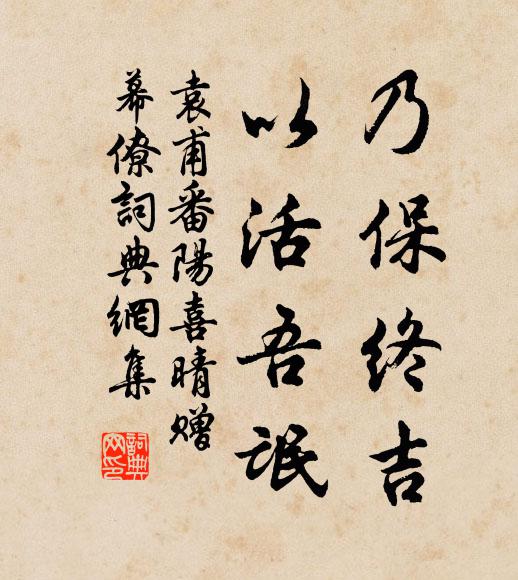 乃保終吉
以活吾氓
袁甫番陽喜晴贈
幕僚詞典網集
詞典網印